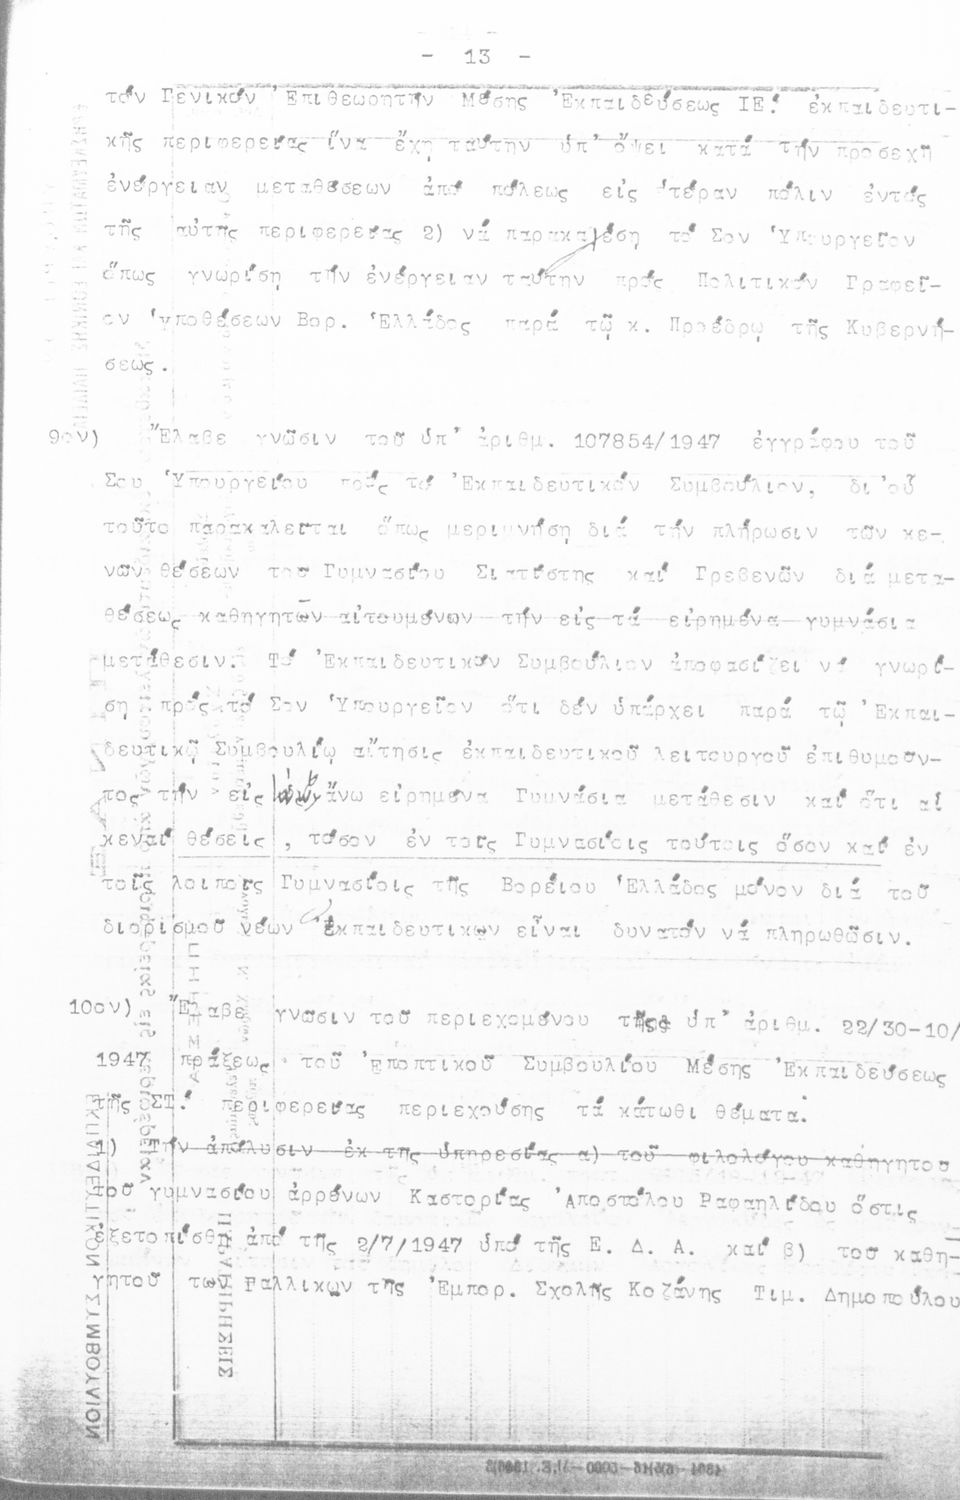 - 13 -
τόν Γενικόν Ἐπιθεωρητήν Μέσης Ἐκπαιδεύσεως ΙΕ! ἐκπαιδευτι-
κῆς περιφερείας ἵνα ἔχη ταύτην ὑπ' ὄψει κατά τήν προσεχῆ
ἐνέργειαν μεταθέσεων ἀπό πόλεως εἰς ἑτέραν πόλιν ἐντός
τῆς αὐτῆς περιφερείας 2) νά παρακαλέση τό Σον Ὑπουργεῖον
ὅπως γνωρίση τήν ἐνέργειαν ταύτην πρός Πολιτικόν Γραφεῖ-
ον Ὑποθέσεων Βορ. Ἑλλάδος παρά τῷ κ. Προέδρῳ τῆς Κυβερνή-
σεως.
9ον) Ἔλαβε γνῶσιν τοῦ ὑπ' ἀριθμ. 107854/1947 ἐγγράφου τοῦ
Σου Ὑπουργείου πρός τό Ἐκπαιδευτικόν Συμβούλιον, δι'οὗ
τοῦτο παρακαλεῖται ὅπως μεριμνήση διά τήν πλήρωσιν τῶν κε-
νῶν θέσεων τοῦ Γυμνασίου Σιατίστης καί Γρεβενῶν διά μετα-
θέσεως καθηγητῶν αἰτουμένων τήν εἰς τά εἰρημένα γυμνάσια
μετάθεσιν. Τό Ἐκπαιδευτικόν Συμβούλιον ἀποφασίζει νά γνωρί-
ση πρός τό Σον Ὑπουργεῖον ὅτι δέν ὑπάρχει παρά τῷ Ἐκπαι-
δευτικῷ Συμβουλίῳ αἴτησις ἐκπαιδευτικοῦ λειτουργοῦ ἐπιθυμοῦν-
τος τήν εἰς ἄνω εἰρημένα Γυμνάσια μετάθεσιν καί ὅτι αἱ
κεναί θέσεις, τόσον ἐν τοῖς Γυμνασίοις τούτοις ὅσον καί ἐν
τοῖς λοιποῖς Γυμνασίοις τῆς Βορείου Ἑλλάδος μόνον διά τοῦ
διορισμοῦ νέων ἐκπαιδευτικῶν εἶναι δυνατόν νά πληρωθῶσιν.
10ον) Ἔλαβε γνῶσιν τοῦ περιεχομένου τῆς ὑπ' ἀριθμ. 22/30-10/
1947 πράξεως τοῦ Ἐποπτικοῦ Συμβουλίου Μέσης Ἐκπαιδεύσεως
τῆς ΣΤ! περιφερείας περιεχούσης τά κάτωθι θέματα:
1) Τήν ἀπόλυσιν ἐκ τῆς ὑπηρεσίας α) τοῦ φιλολόγου καθηγητοῦ
τοῦ γυμνασίου ἀρρένων Καστορίας Ἀποστόλου Ραφαηλίδου ὅστις
ἐξετοπίσθη ἀπό τῆς 2/7/1947 ὑπό τῆς Ε. Δ. Α. καί β) τοῦ καθη-
γητοῦ τῶν Γαλλικῶν τῆς Ἐμπορ. Σχολῆς Κοζάνης Τιμ. Δημοπούλου